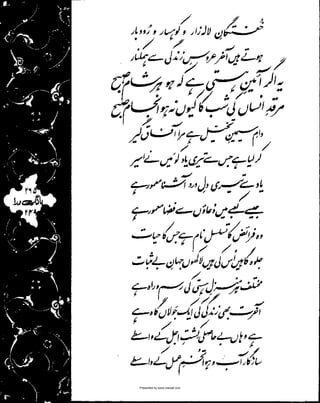 خفتگانِ لالہ زار و کوہسار و رُود بار
ہوتے ہیں آخر عروسِ زندگی سے ہمکنار
یہ اگر آئینِ ہستی ہے کہ ہو ہر شام صبح
مرقدِ انساں کی شب کا کیوں نہ ہو انجام صبح
دامِ سیمینِ تخیّل ہے مرا آفاق گیر
کر لیا ہے جس سے تیری یاد کو میں نے اسیر
یاد سے تیری دلِ درد آشنا معمور ہے
جیسے کعبے میں دُعاؤں سے فضا معمور ہے
وہ فرائض کا تسلسل نام ہے جس کا حیات
جلوہ گاہیں اُس کی ہیں لاکھوں جہانِ بے ثبات
مختلف ہر منزلِ ہستی کی رسم و راہ ہے
آخرت بھی زندگی کی ایک جَولاں گاہ ہے
ہے وہاں بے حاصلی کِشتِ اجل کے واسطے
سازگار آب و ہوا تخمِ عمل کے واسطے
۲۶۵
بانگِ درا
۲۴۹